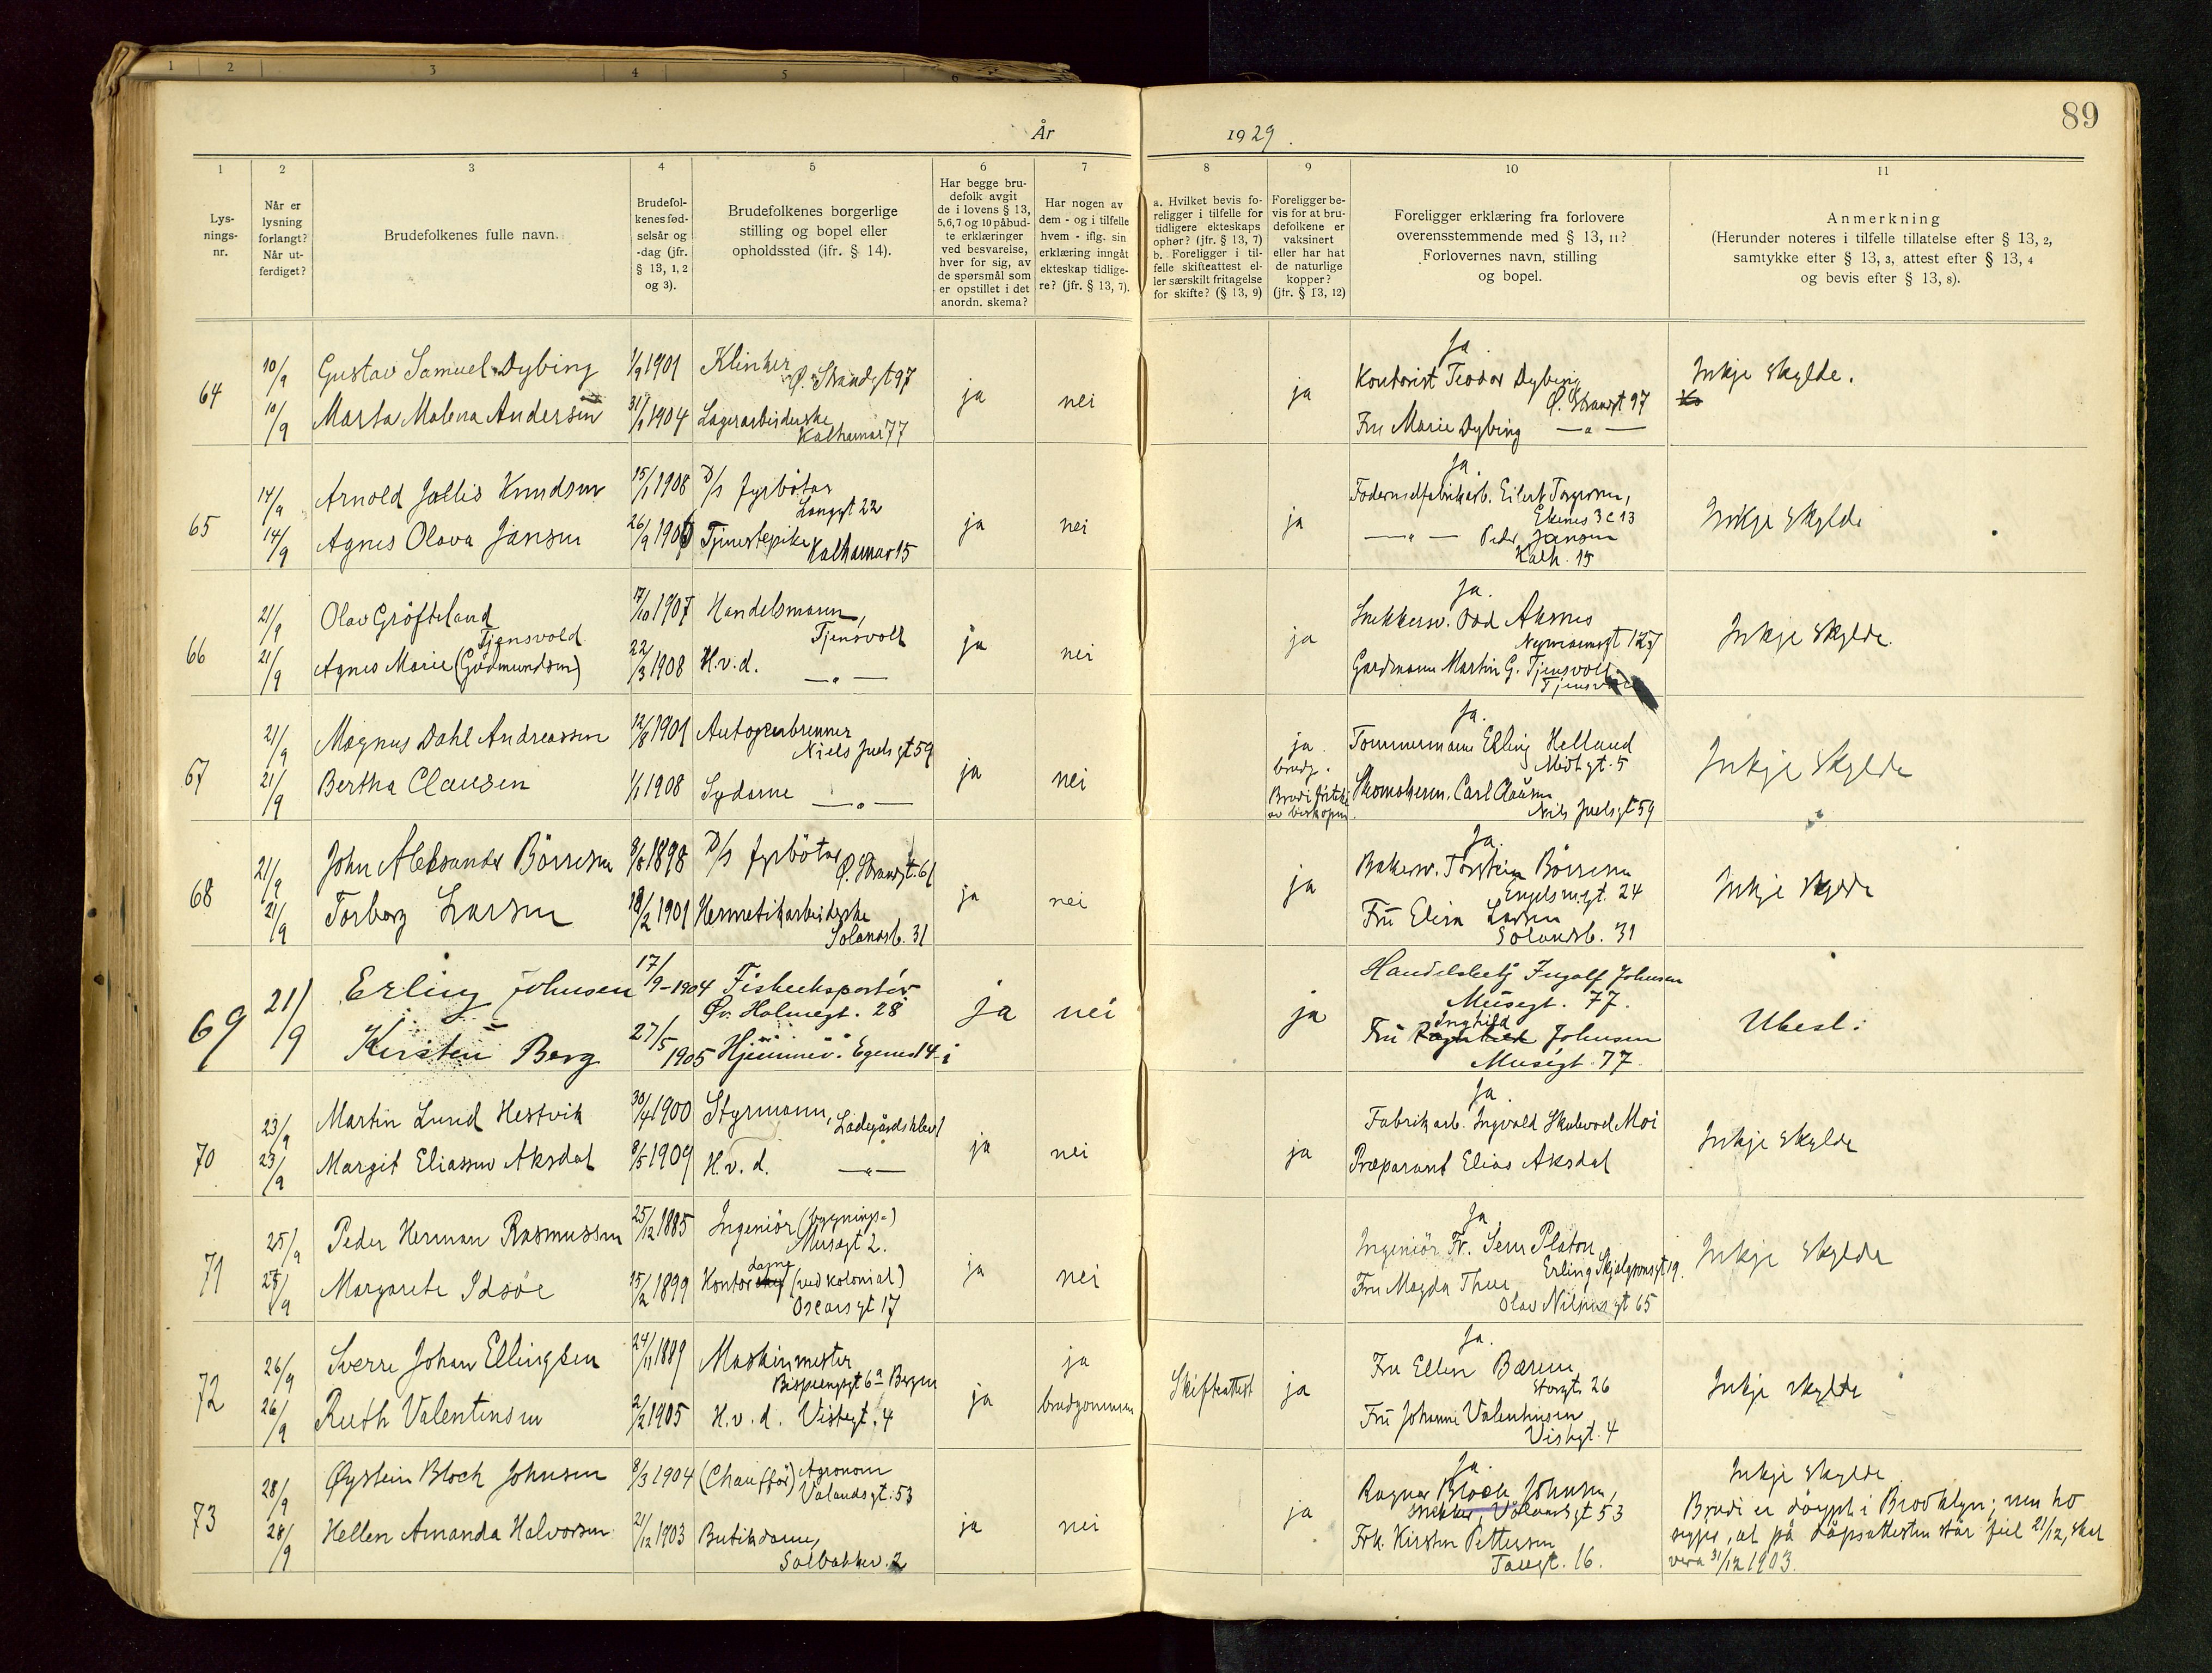 89
År 1929.
1 2 3 4 5 6 7 8 9 10 11
Lys-
nings-
nr.
Når er
lysning
forlangt?
Når ut-
ferdiget?
Brudefolkenes fulle navn.
Brudefol-
kenes fød-
selsår og
-dag (jfr.
§ 13, 1, 2
og 3).
Brudefolkenes borgerlige
stilling og bopel eller
opholdssted (jfr. § 14).
Har begge bru-
defolk avgit
de i lovens § 13,
5,6,7 og 10 påbud-
te erklæringer
ved besvarelse,
hver for sig, av
de spørsmål som
er opstillet i det
anordn. skema?
Har nogen av
dem - og i tilfelle
hvem - iflg. sin
erklæring inngåt
ekteskap tidlige-
re? (jfr. § 13, 7).
a. Hvilket bevis fo-
religger i tilfelle for
tidligere ekteskaps
ophør? (jfr. § 13, 7)
b. Foreligger i til-
felle skifteattest el-
ler særskilt fritagelse
for skifte? (§ 13, 9)
Foreligger be-
vis for at bru-
defolkene er
vaksinert
eller har hat
de naturlige
kopper?
(jfr. § 13, 12)
Foreligger erklæring fra forlovere
overensstemmende med § 13, 11?
Forlovernes navn, stilling
og bopel.
Anmerkning
(Herunder noteres i tilfelle tillatelse efter § 13, 2,
samtykke efter § 13, 3, attest efter § 13, 4
og bevis efter § 13, 8).
64
10/9 Gustav Samuel Dybing 1/9 1901 Klinker
Ø. Strandgt 97
10/9 Marta Malena Andersen 31/1 1904 Lagerarbeiderske
Kalhamar 77
ja nei ja
Ja.
Kontorist Teodor Dybing
Ø. Strandgt 97
Fru Marie Dybing —"—
Inkje skylde.
65
14/9 Arnold Jallis Knudsen 15/1 1908 D/s fyrbötar
Langgt 22
14/9 Agnes Olava Jansen 26/9 1906 Tjenestepike Kalhamar 15
ja nei ja
Ja
Eilert Torgersen,
Ekenes 3 c 13
—"— Peder Jansen
Kalh. 15
Inkje skylde
66
21/9 Olav Gröfteland 17/10 1907 Handelsmann,
Tjensvoll
21/9 Tjensvold
Agnes Marie (Gudmundsen) 22/3 1908 H.v.d. —"—
ja nei ja
Ja.
Snekkersv. Odd Aksnes
Nymannsgt 127
Gardmann Martin G. Tjensvoll
Tjensvoll
Inkje skylde.
67
21/9 Magnus Dahl Andreassen 12/8 1901 Autogenbrenner
Niels Juels gt 59
21/9 Bertha Clausen 1/1 1908 Sydame —"—
ja nei
ja.
brudg.
Brudi friteke
av biskopen.
Ja.
Tømmermann Elling Helland
Midtgt. 5
Skomakerm. Carl Clausen
Nils Juels gt 59
Inkje skylde
68
21/9 John Aleksander Börresen 8/8 1898 D/s fyrbötar
Ø. Strandgt. 61
21/9 Torborg Larsen 18/2 1901 Hermetikarbeiderske
Solandsb. 31
ja nei ja
Ja.
Bakersv. Torstein Börresen
Engelsm.gt. 24
Fru Elisa Larsen
Solandsb. 31
Inkje skylde
69
21/9 Erling Johnsen 17/9-1904 Fiskeeksportör
Øv. Holmegt. 28
Kirsten Berg 27/5 1905 Hjemmev. Egenes 14 i
ja nei ja
Handelsbetj Ingolf Johnsen
Musegt. 77.
Inghild
Fru Johnsen
Musegt. 77.
Ubesl:
70
23/9 Martin Lund Hestvik 30/4 1900 Styrmann, Ladegårdskleiv 1
23/9 Margit Eliassen Aksdal 8/5 1909 H.v.d. —"—
ja nei ja
Ja.
Fabrikarb. Ingvald Skulevod Moi
Præparant Elias Aksdal
Inkje skylde
71
25/9 Peder Herman Rasmussen 25/12 1885 Ingeniör (bygnings-)
Musegt 2.
25/9 Margarete Idsöe 15/2 1899 Kontordame (ved kolonial)
Oscarsgt 17
ja nei
Ja
Ingeniör Fr. Sem Platou
Erling Skjalgsonsgt 19.
Fru Magda Thue
Olav Nilsens gt 65
Inkje skylde
72
26/9 Sverre Johan Ellingsen 24/11 1889 Maskinmester
Bispeengsgt 6a Bergen
26/9 Ruth Valentinsen 2/2 1905 H.v.d. Vistegt. 4
ja
ja
brudgommen
Skifteattest ja
Ja.
Fru Ellen Bærem
Storgt. 26
Fru Johanne Valentinsen
Vistegt. 4
Inkje skylde
73
28/9 Øystein Bloch Johnsen 8/3 1904 (Chauffør) Agronom
Valandsgt: 53
28/9 Hellen Amanda Halvorsen 21/12 1903 Butikdame,
Solbakkev. 2
ja nei ja
Ja.
Ragnar Bloch Johnsen,
Snekker, Valandsgt 53
Frk. Kirsten Pettersen
Taugt. 16.
Inkje skylde
Brudi er döypt i Brooklyn; men ho
segjer, at på dåpsattesten står feil 21/12, skal
vera 31/12 1903.